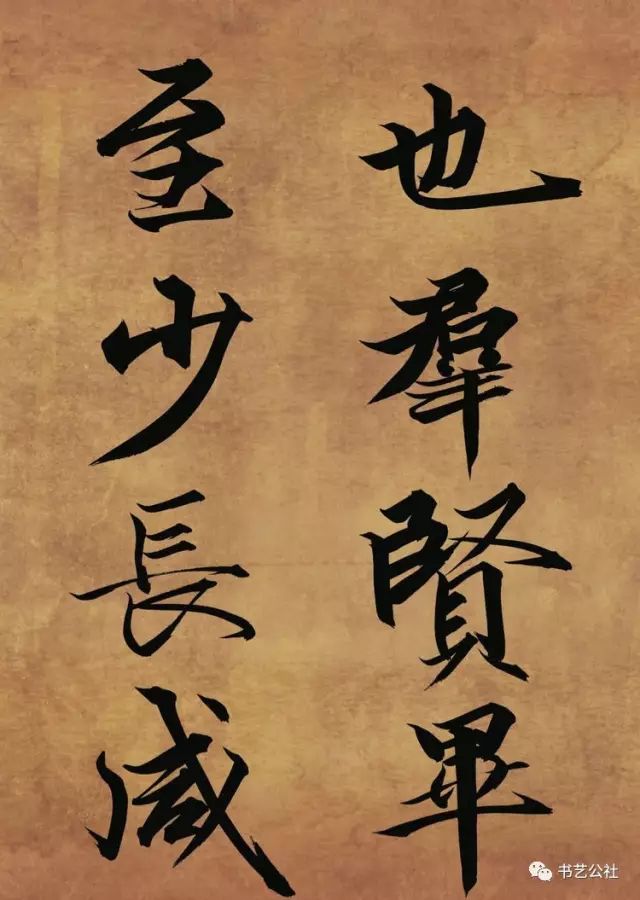 也羣賢畢
至少長咸
书艺公社